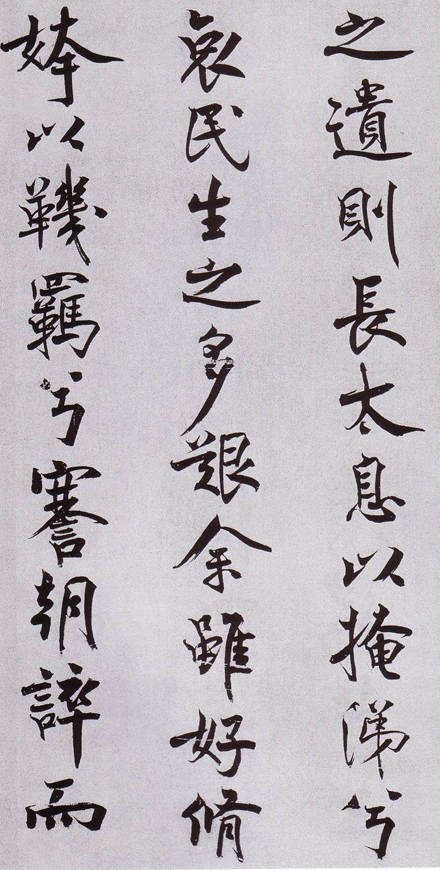 之遺則長太息以掩涕兮
哀民生之多艱余雖好脩
姱以鞿羈兮謇朝誶而